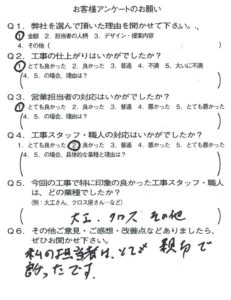 お客様アンケートのお願い
Q1. 弊社を選んで頂いた理由を聞かせて下さい。
① 金額 2. 担当者の人柄 3. デザイン・提案内容
4. その他 (
Q2. 工事の仕上がりはいかがでしたか?
① とても良かった 2. 良かった 3. 普通 4. 不満 5. 大いに不満
(4. 5. の場合、理由は?
Q3. 営業担当者の対応はいかがでしたか?
① とても良かった 2. 良かった 3. 普通 4. 悪い 5. とても悪かった
(4. 5. の場合、理由は?
Q4. 工事スタッフ・職人の対応はいかがでしたか?
1. とても良かった ② 良かった 3. 普通 4. 悪い 5. とても悪かった
(4. 5. の場合、具体的な業種と理由は?
Q5. 今回の工事で特に印象の良かった工事スタッフ・職人
は、どの業種でしたか?
(例:大工さん、クロス屋さん…など)
大工、クロス その他
Q6. その他ご意見・ご感想・改善点などありましたら、
ぜひお聞かせ下さい。
私の担当者は、とても 親切で
です。